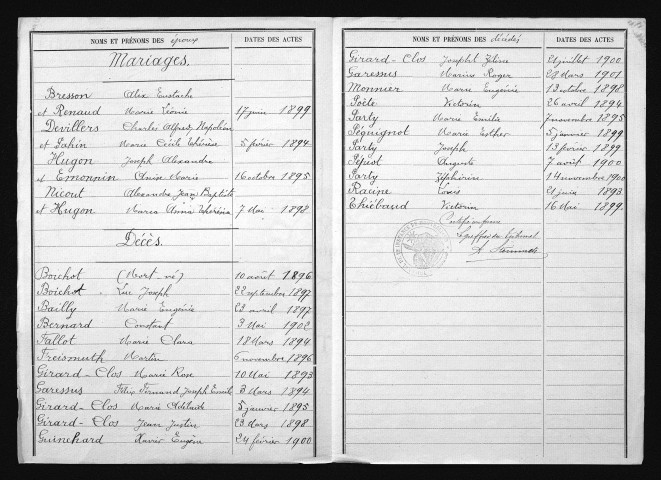 NOMS ET PRÉNOMS DES époux DATES DES ACTES
Mariages.
Bresson Alix Eustache
et Renaud Marie Léonie 17 juin 1899
Devillers Charles Alfred Napoléon
et Sahin Marie Cécile Thérèse 5 février 1894
Hugon Joseph Alexandre
et Emonnin Anise Marie 16 octobre 1895
Nicout Alexandre Jean Baptiste
et Hugon Marea Anna Thérésia 7 Mai 1898
Décès.
Boichot (Mort-né) 10 août 1896
Boichot Luc Joseph 22 septembre 1897
Bailly Marie Eugénie 23 avril 1897
Bernard Constant 3 Mai 1902
Fallot Marie Clara 18 Mars 1894
Freismuth Martin 6 novembre 1896
Girard-Clos Marie Rose 10 Mai 1893
Garessus Félix Fernand Joseph Emile 3 Mars 1894
Girard-Clos Marie Adelaïde 5 janvier 1895
Girard-Clos Jean Justin 23 Mars 1898
Guinchard Xavier Eugène 24 février 1900
NOMS ET PRÉNOMS DES décédés DATES DES ACTES
Girard-Clos Joseph Zélim 21 juillet 1900
Garessus Marius Roger 28 Mars 1901
Monnier Marie Eugénie 13 octobre 1898
Poète Victorin 26 avril 1894
Party Marie Emilie 7 novembre 1895
Péquignot Marie Esther 5 janvier 1899
Party Joseph 13 février 1899
Pépiot Auguste 7 août 1900
Party Zéphirin 14 novembre 1900
Racine Louis 21 juin 1893
Thiébaud Victorin 16 Mai 1899
Certifié conforme
Le greffier du tribunal